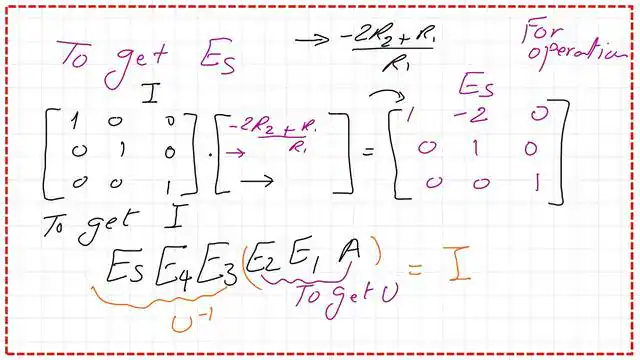 To get E5 → -2R2+R1 / R1 For operation
I E5
[1 0 0 0 1 0 0 0 1] · [-2R2+R1 / R1 → →] = [1 -2 0 0 1 0 0 0 1]
To get I
E5 E4 E3 (E2 E1 A) = I
U⁻¹ To get U